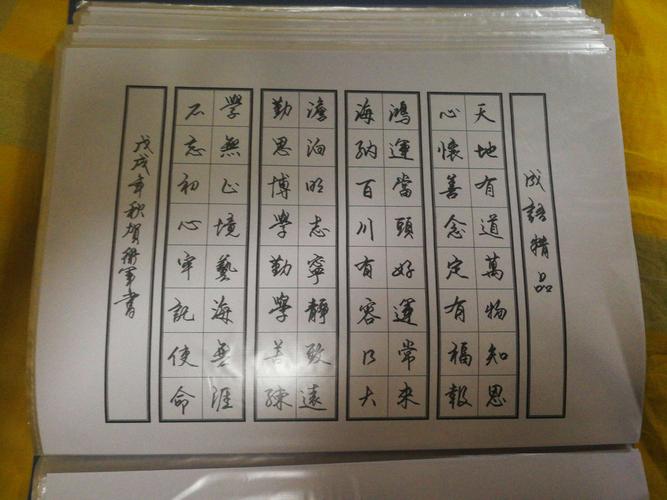 成語精品
天地有道萬物知恩
心懷善念定有福報
鴻運當頭好運常來
海納百川有容乃大
澹泊明志寧靜致遠
勤思博學勤學善練
學無止境藝海無涯
不忘初心牢記使命
戊戌年秋賀衛軍書